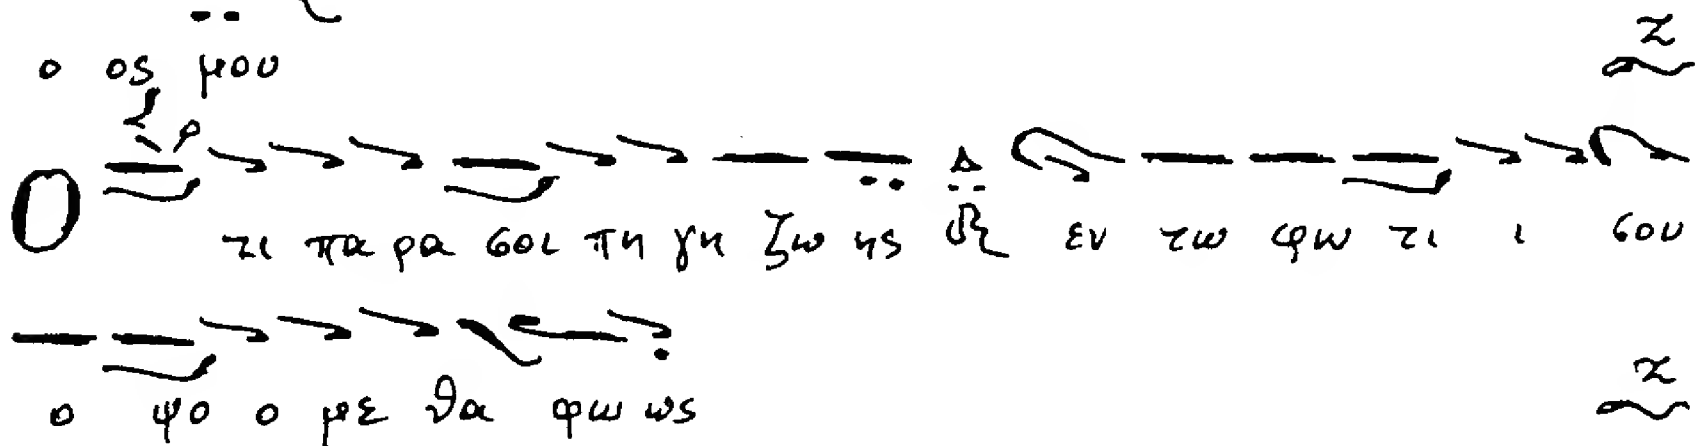 ο ος μου
Ο τι πα ρα σοι πη γη ζω ης Δ ϗ εν τω φω τι ι σου
ο ψο ο με θα φω ως